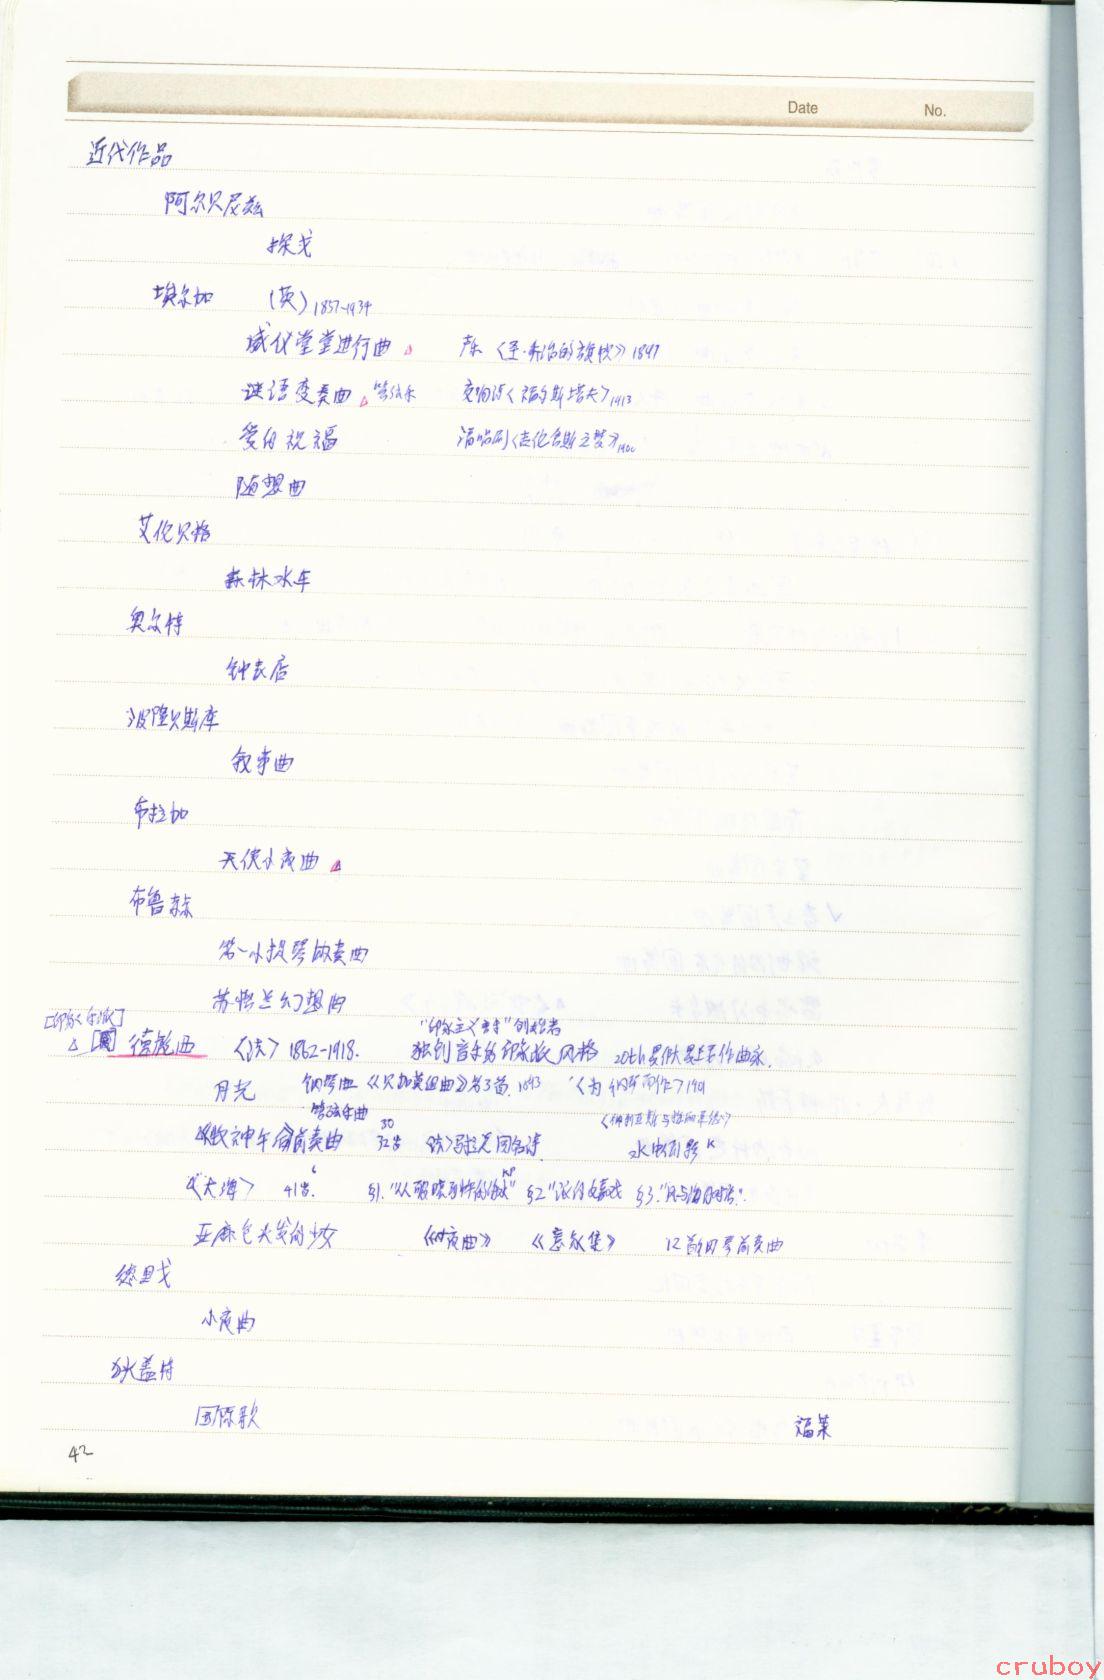 Date No.
近代作品
阿尔贝尼兹
探戈
埃尔加 (英) 1857-1934
威仪堂堂进行曲 声乐《圣·乔治的旗帜》1897
谜语变奏曲 管弦乐 交响诗《福尔斯塔夫》1913
爱的祝福 清唱剧《杰伦修斯之梦》1900
随想曲
艾伦贝格
森林水车
奥尔特
钟表店
波隆贝斯库
叙事曲
布拉加
天使小夜曲
布鲁赫
第一小提琴协奏曲
苏格兰幻想曲
[印象乐派] "印象主义音乐"创始者
德彪西 〈法〉1862-1918. 独创音乐的印象派风格 20th 最伟大 作曲家
月光 钢琴曲《贝加莫组曲》第3首. 1893 〈为钢琴而作〉1901
管弦乐曲
牧神午后前奏曲 30 32岁 马拉美同名诗 水中倒影 K
《大海》 41岁. §1. "从破晓到中午的海" KP §2 "波浪的嬉戏 §3. "风与海的对话".
亚麻色头发的少女 《夜曲》 《意象集》 12首钢琴前奏曲
德里戈
小夜曲
狄盖特
国际歌 福莱
42
cruboy